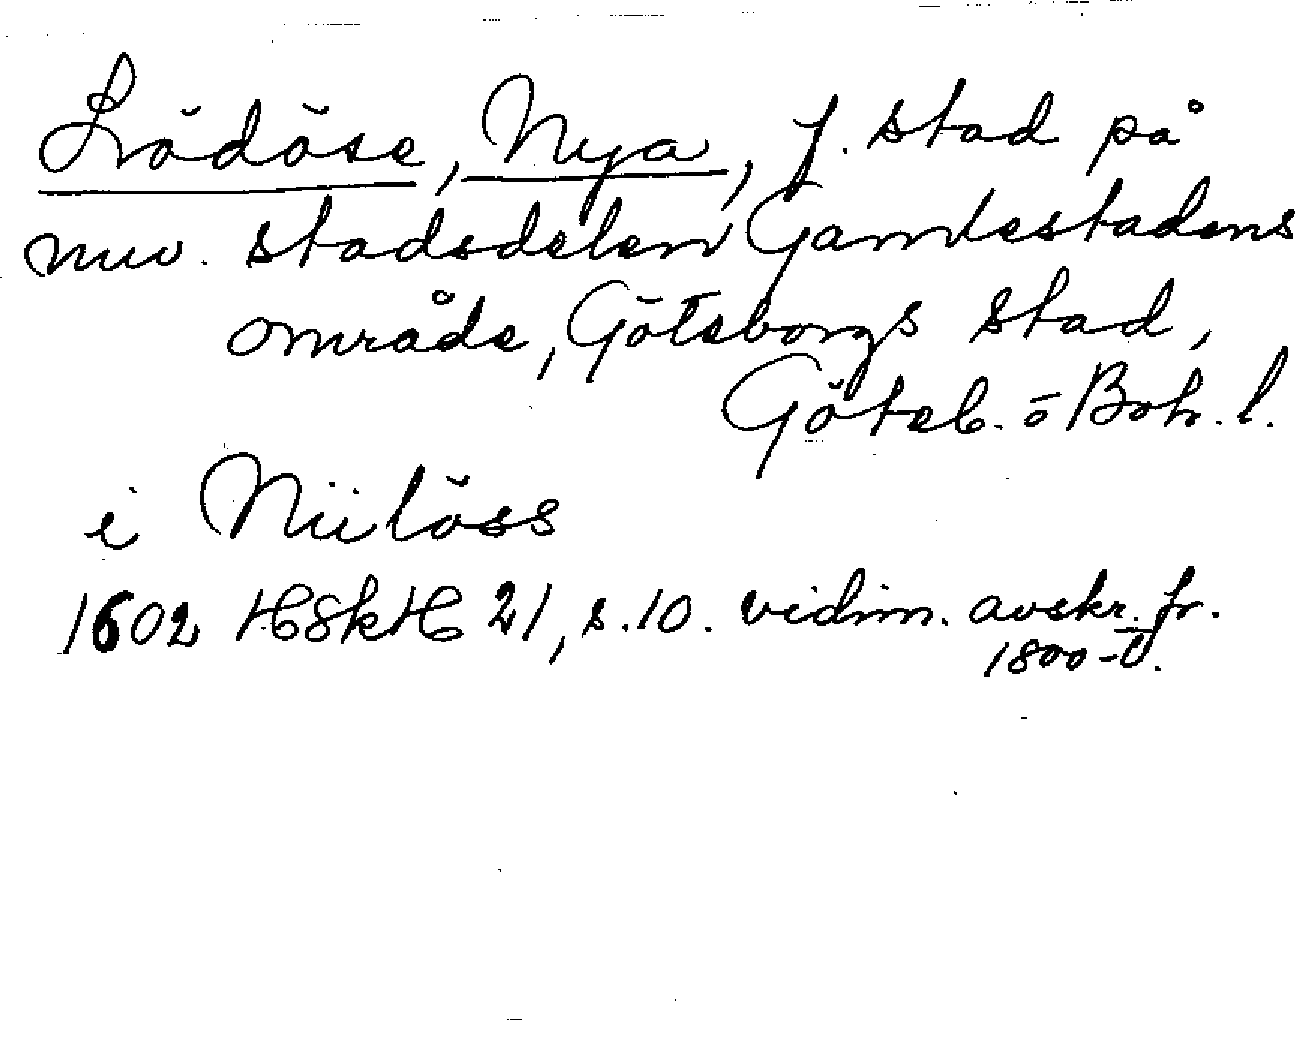 Lödöse, Nya, f. stad på
nuv. stadsdelen Gamlestadens
område, Göteborgs stad,
Göteb. o Boh. l.
i Niilöss
1602 HSkH 21, s. 10. vidim. avskr. fr.
1800-t.